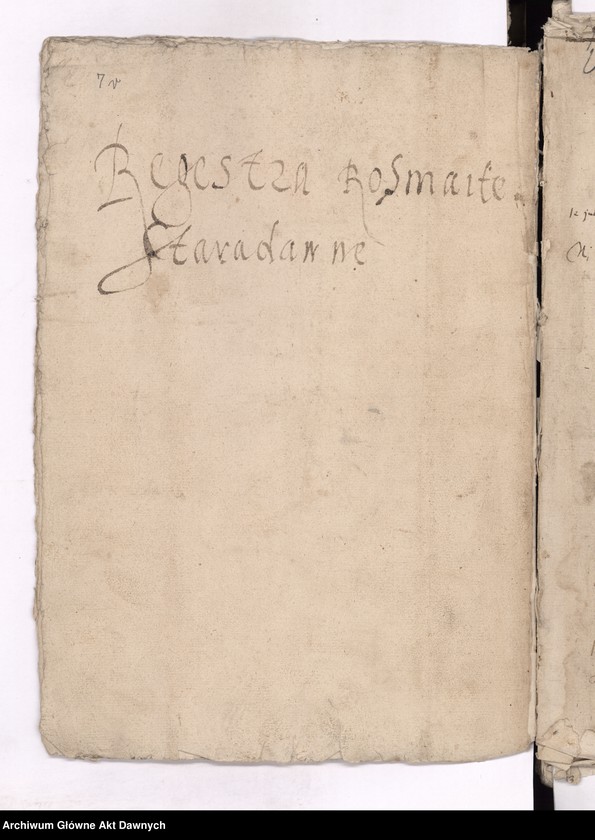 7v
Regestra Rosmaite
Staradawne
12
Archiwum Główne Akt Dawnych